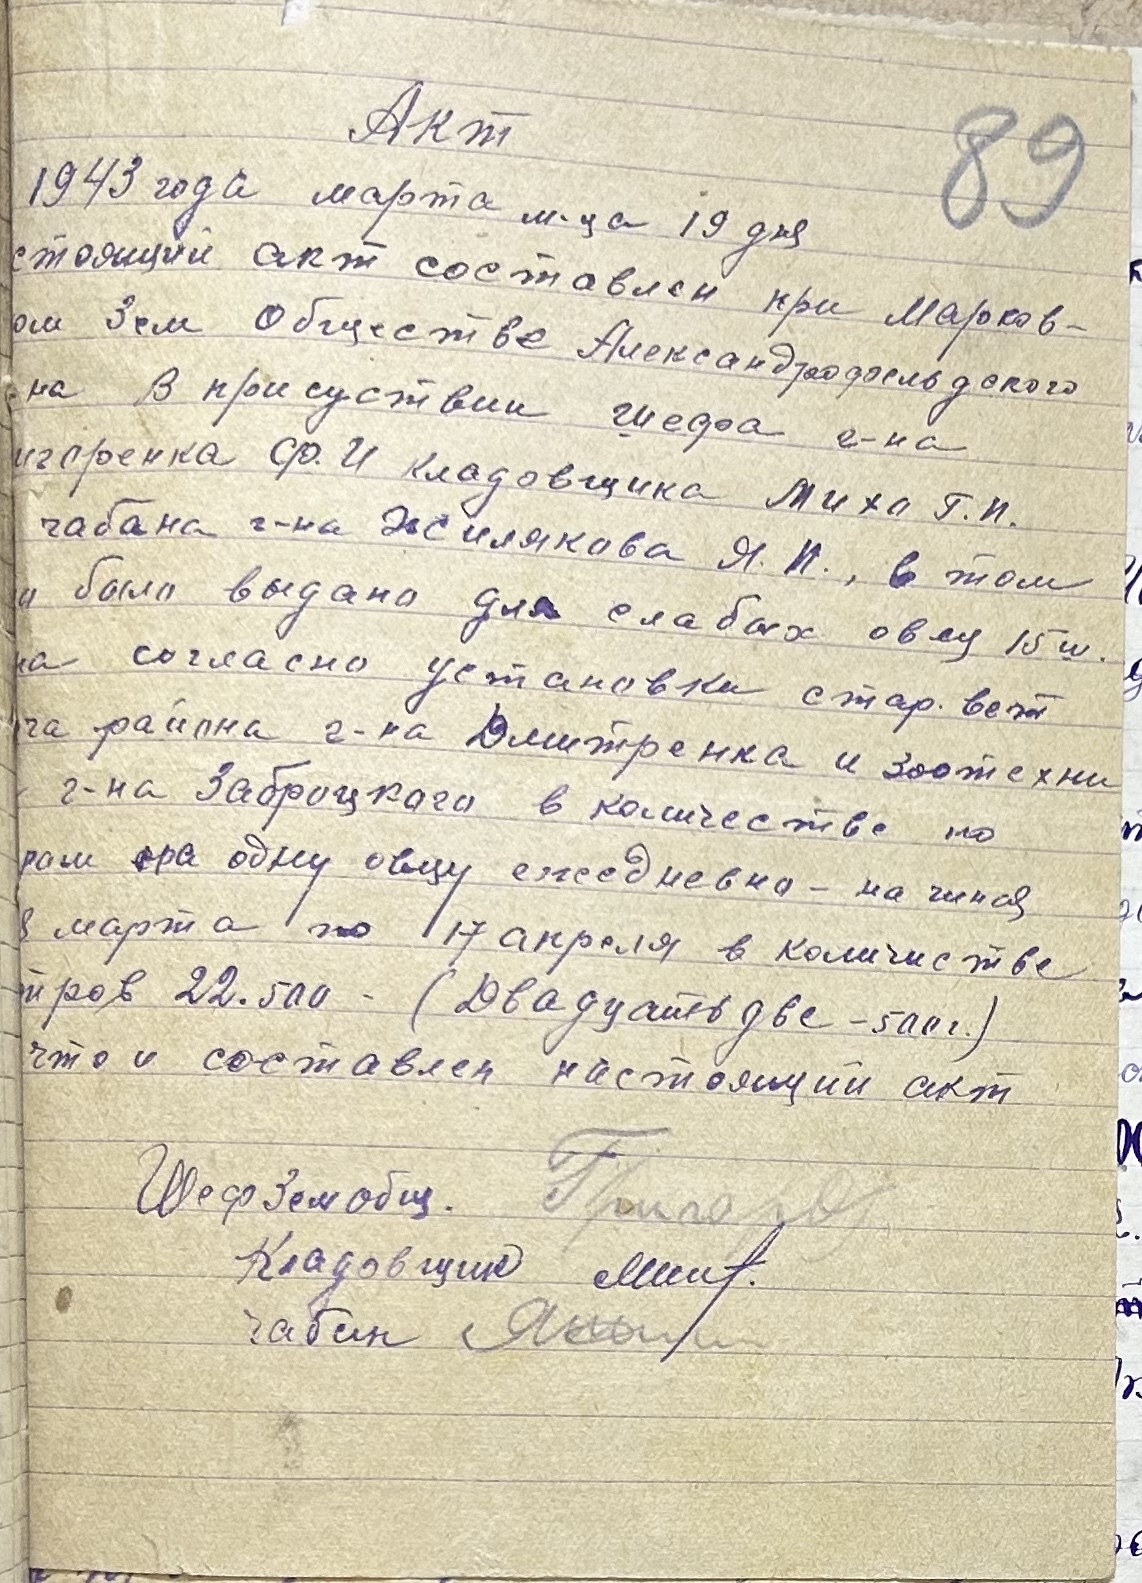 89
Акт
1943 года марта м-ца 19 дня
стоящий акт составлен при Марков-
ом Зем Обществе Александрфельдского
на В присуствии шефа г-на
игоренка Ф. И кладовщика Миха Г. П.
чабана г-на Жилякова Я. П., в том
о было выдано для слабых овец 15 ш.
на согласно установки стар. вет
ча района г-на Дмитренка и Зоотехни
г-на Заброцкого в количестве по
рам на одну овцу ежедневно - начиная
8 марта по 17 апреля в количистве
тров 22.500 - (Двадцать две - 500 г.)
что и составлен настоящий акт
Шеф Земобщ. Григор
Кладовщик Мих
чабан